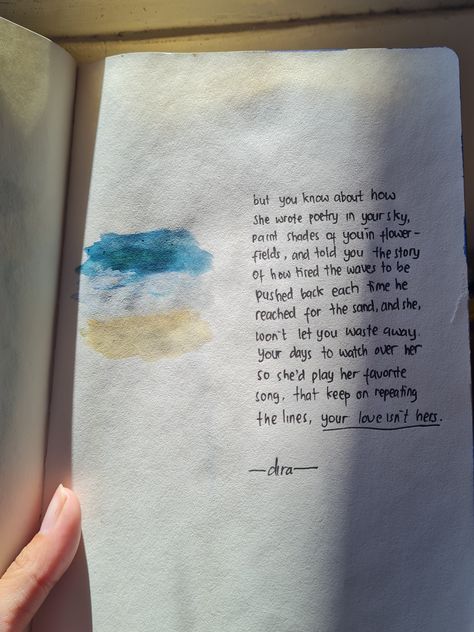 but you know about how
she wrote poetry in your sky,
paint shades of you in flower-
fields, and told you the story
of how tired the waves to be
pushed back each time he
reached for the sand, and she,
won't let you waste away.
your days to watch over her
so she'd play her favorite
song, that keep on repeating
the lines, your love isn't hers.
—dira—